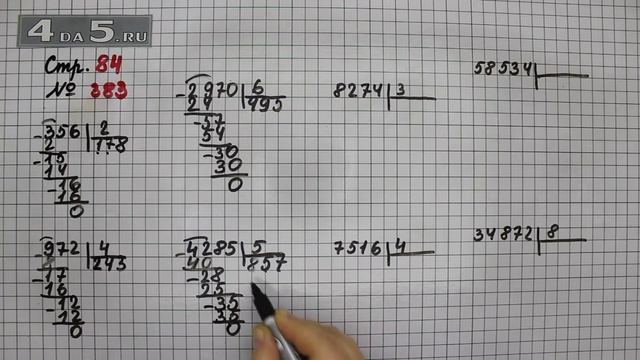 4DA5.RU
Стр. 84
№ 383
-356 | 2
2 | 178
-15
14
-16
16
0
-2970 | 6
24 | 495
-57
54
-30
30
0
8274 | 3
58534
-972 | 4
8 | 243
-17
16
-12
12
0
-4285 | 5
40 | 857
-28
25
-35
35
0
7516 | 4
34872 | 8